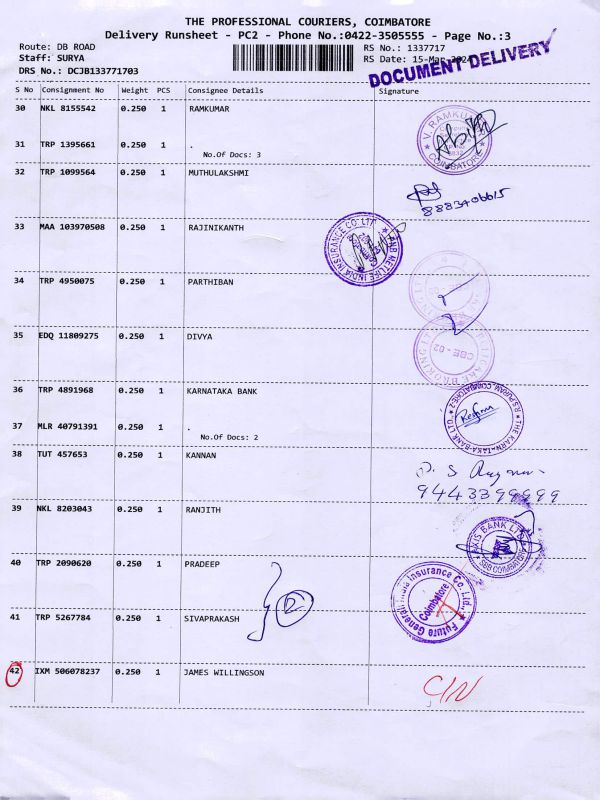 THE PROFESSIONAL COURIERS, COIMBATORE
Delivery Runsheet - PC2 - Phone No.:0422-3505555 - Page No.:3
Route: DB ROAD RS No.: 1337717
Staff: SURYA RS Date: 15-Mar-2024
DRS No.: DCJB133771703
DOCUMENT DELIVERY
S No Consignment No Weight PCS Consignee Details Signature
30 NKL 8155542 0.250 1 RAMKUMAR
V. RAMKU
COIMBATORE
31 TRP 1395661 0.250 1 .
No.Of Docs: 3
32 TRP 1099564 0.250 1 MUTHULAKSHMI
33 MAA 103970508 0.250 1 RAJINIKANTH
PNB METLIFE INDIA INSURANCE CO. LTD
34 TRP 4950075 0.250 1 PARTHIBAN
35 EDQ 11809275 0.250 1 DIVYA
CBE - 02
36 TRP 4891968 0.250 1 KARNATAKA BANK
THE KARNATAKA BANK LTD. R.S PURAM, COIMBATORE-2
37 MLR 40791391 0.250 1 .
No.Of Docs: 2
38 TUT 457653 0.250 1 KANNAN
9443399999
39 NKL 8203043 0.250 1 RANJITH
AXIS BANK LTD
COIMBATORE
40 TRP 2090620 0.250 1 PRADEEP
2
Future Generali India Insurance Co. Ltd.
Coimbatore
41 TRP 5267784 0.250 1 SIVAPRAKASH
42 IXM 506078237 0.250 1 JAMES WILLINGSON
C/N